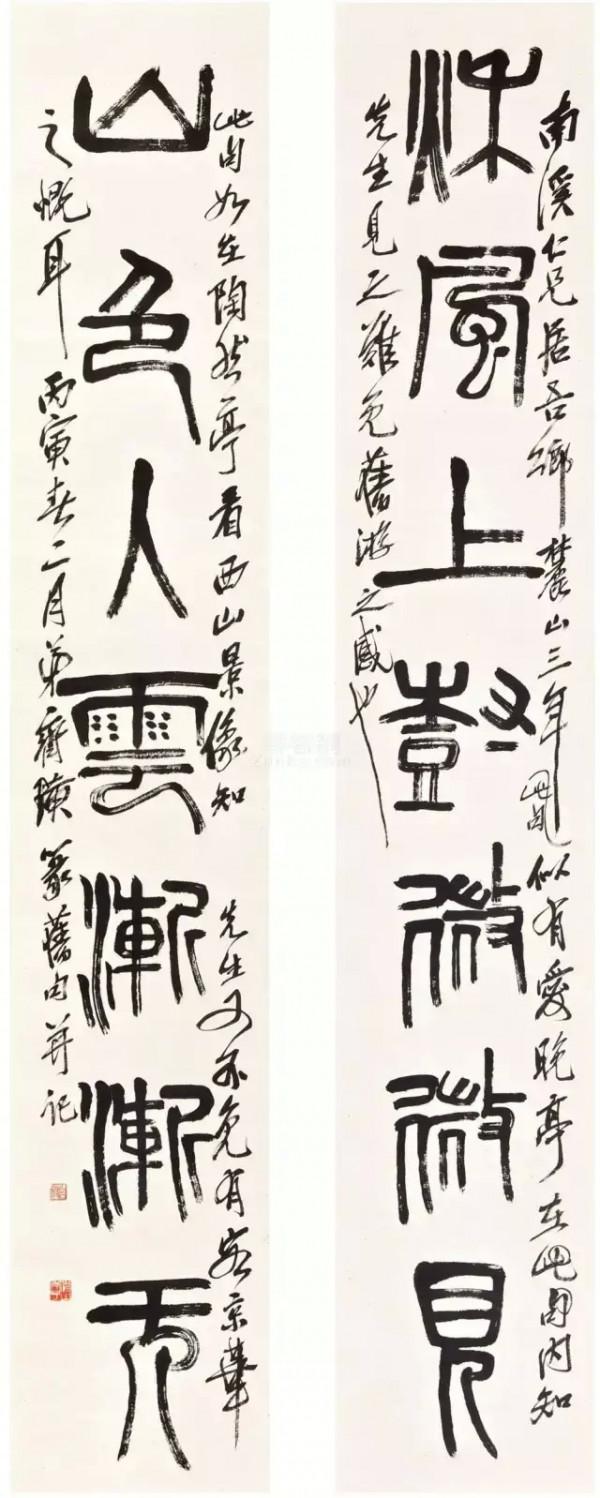 南溪仁兄居吾鄉麓山三年此句似有愛晚亭在此句内知
秋風上尌微微見
先生見之難免舊游之感也
此句如在陶然亭看西山景像知先生又不免有客京華
山色入雲漸漸无
之慨耳丙寅春二月弟齊璜篆舊句并記